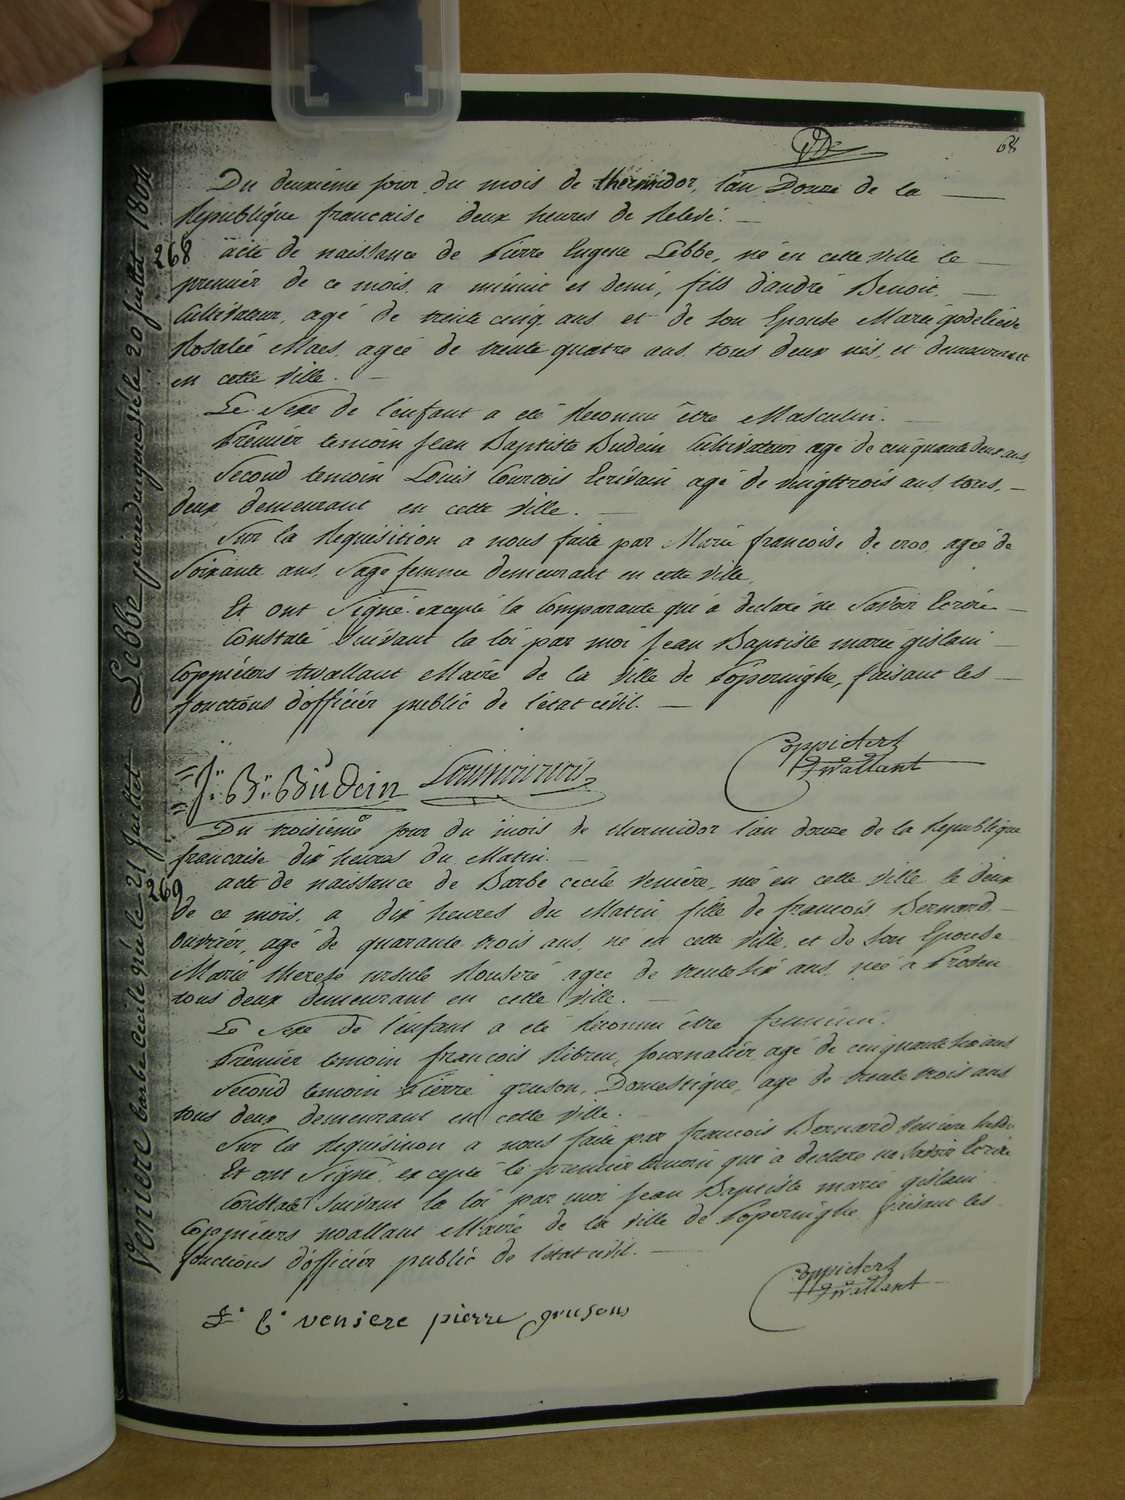 68
Du deuxième jour du mois de thermidor, l'an Douze de la
Republique francaise deux heures de Relevé.
268
acte de naissance de Pierre Eugene Lebbe, né en cette ville le
premier de ce mois, a minuit et demi, fils d'andré Benoit,
Cultivateur, agé de trente cinq ans et de son Epouse Marie godelieve
Rosalie Maes, agée de trente quatre ans, tous deux nés, et demeurant
en cette ville.
Le Sexe de l'enfant a eté Reconnu être Masculin.
Premier temoin Jean Baptiste Budein Cultivateur agé de cinquante deux ans
Second temoin Louis Courtois Ecrivain agé de vingt trois ans, tous
deux demeurant en cette ville.
Sur la Requisition a nous faite par Marie francoise de croo, agée de
Soixante ans, Sage femme demeurant en cette ville,
Et ont Signé excepté la Comparante qui a declaré ne Savoir Ecrire
Constaté Suivant la loi par moi Jean Baptiste marie gislain
Coppieters twallant Maire de la Ville de Poperinghe, faisant les
fonctions d'officier public de l'état civil.
Coppieters
Twallant
J. Bte Budein
Du troisième jour du mois de thermidor l'an douze de la Republique
francaise dix heures du Matin.
269
acte de naissance de Barbe cecile veniere, née en cette ville le deux
de ce mois, a dix heures du Matin fille de francois Bernard
ouvrier, agé de quarante trois ans, né en cette ville, et de Son Epouse
Marie therese ursule agée de trente six ans, née a
tous deux demeurant en cette ville.
Le Sexe de l'enfant a eté Reconnu être feminin.
Premier temoin francois journalier agé de cinquante six ans
Second temoin Pierre gruson, Domestique, agé de trente trois ans
tous deux demeurant en cette ville.
Sur la Requisition a nous faite par francois Bernard Veniere
Et ont Signé excepté le premier temoin qui a declaré ne Savoir Ecrire
Constaté Suivant la loi par moi Jean Baptiste marie gislain
Coppieters twallant Maire de la ville de Poperinghe faisant les
fonctions d'officier public de l'état civil.
Coppieters
Twallant
veniere pierre grusons
Lebbe pierre eugene né le 20 juillet 1804
Veniere barbe Cecile née le 21 Juillet